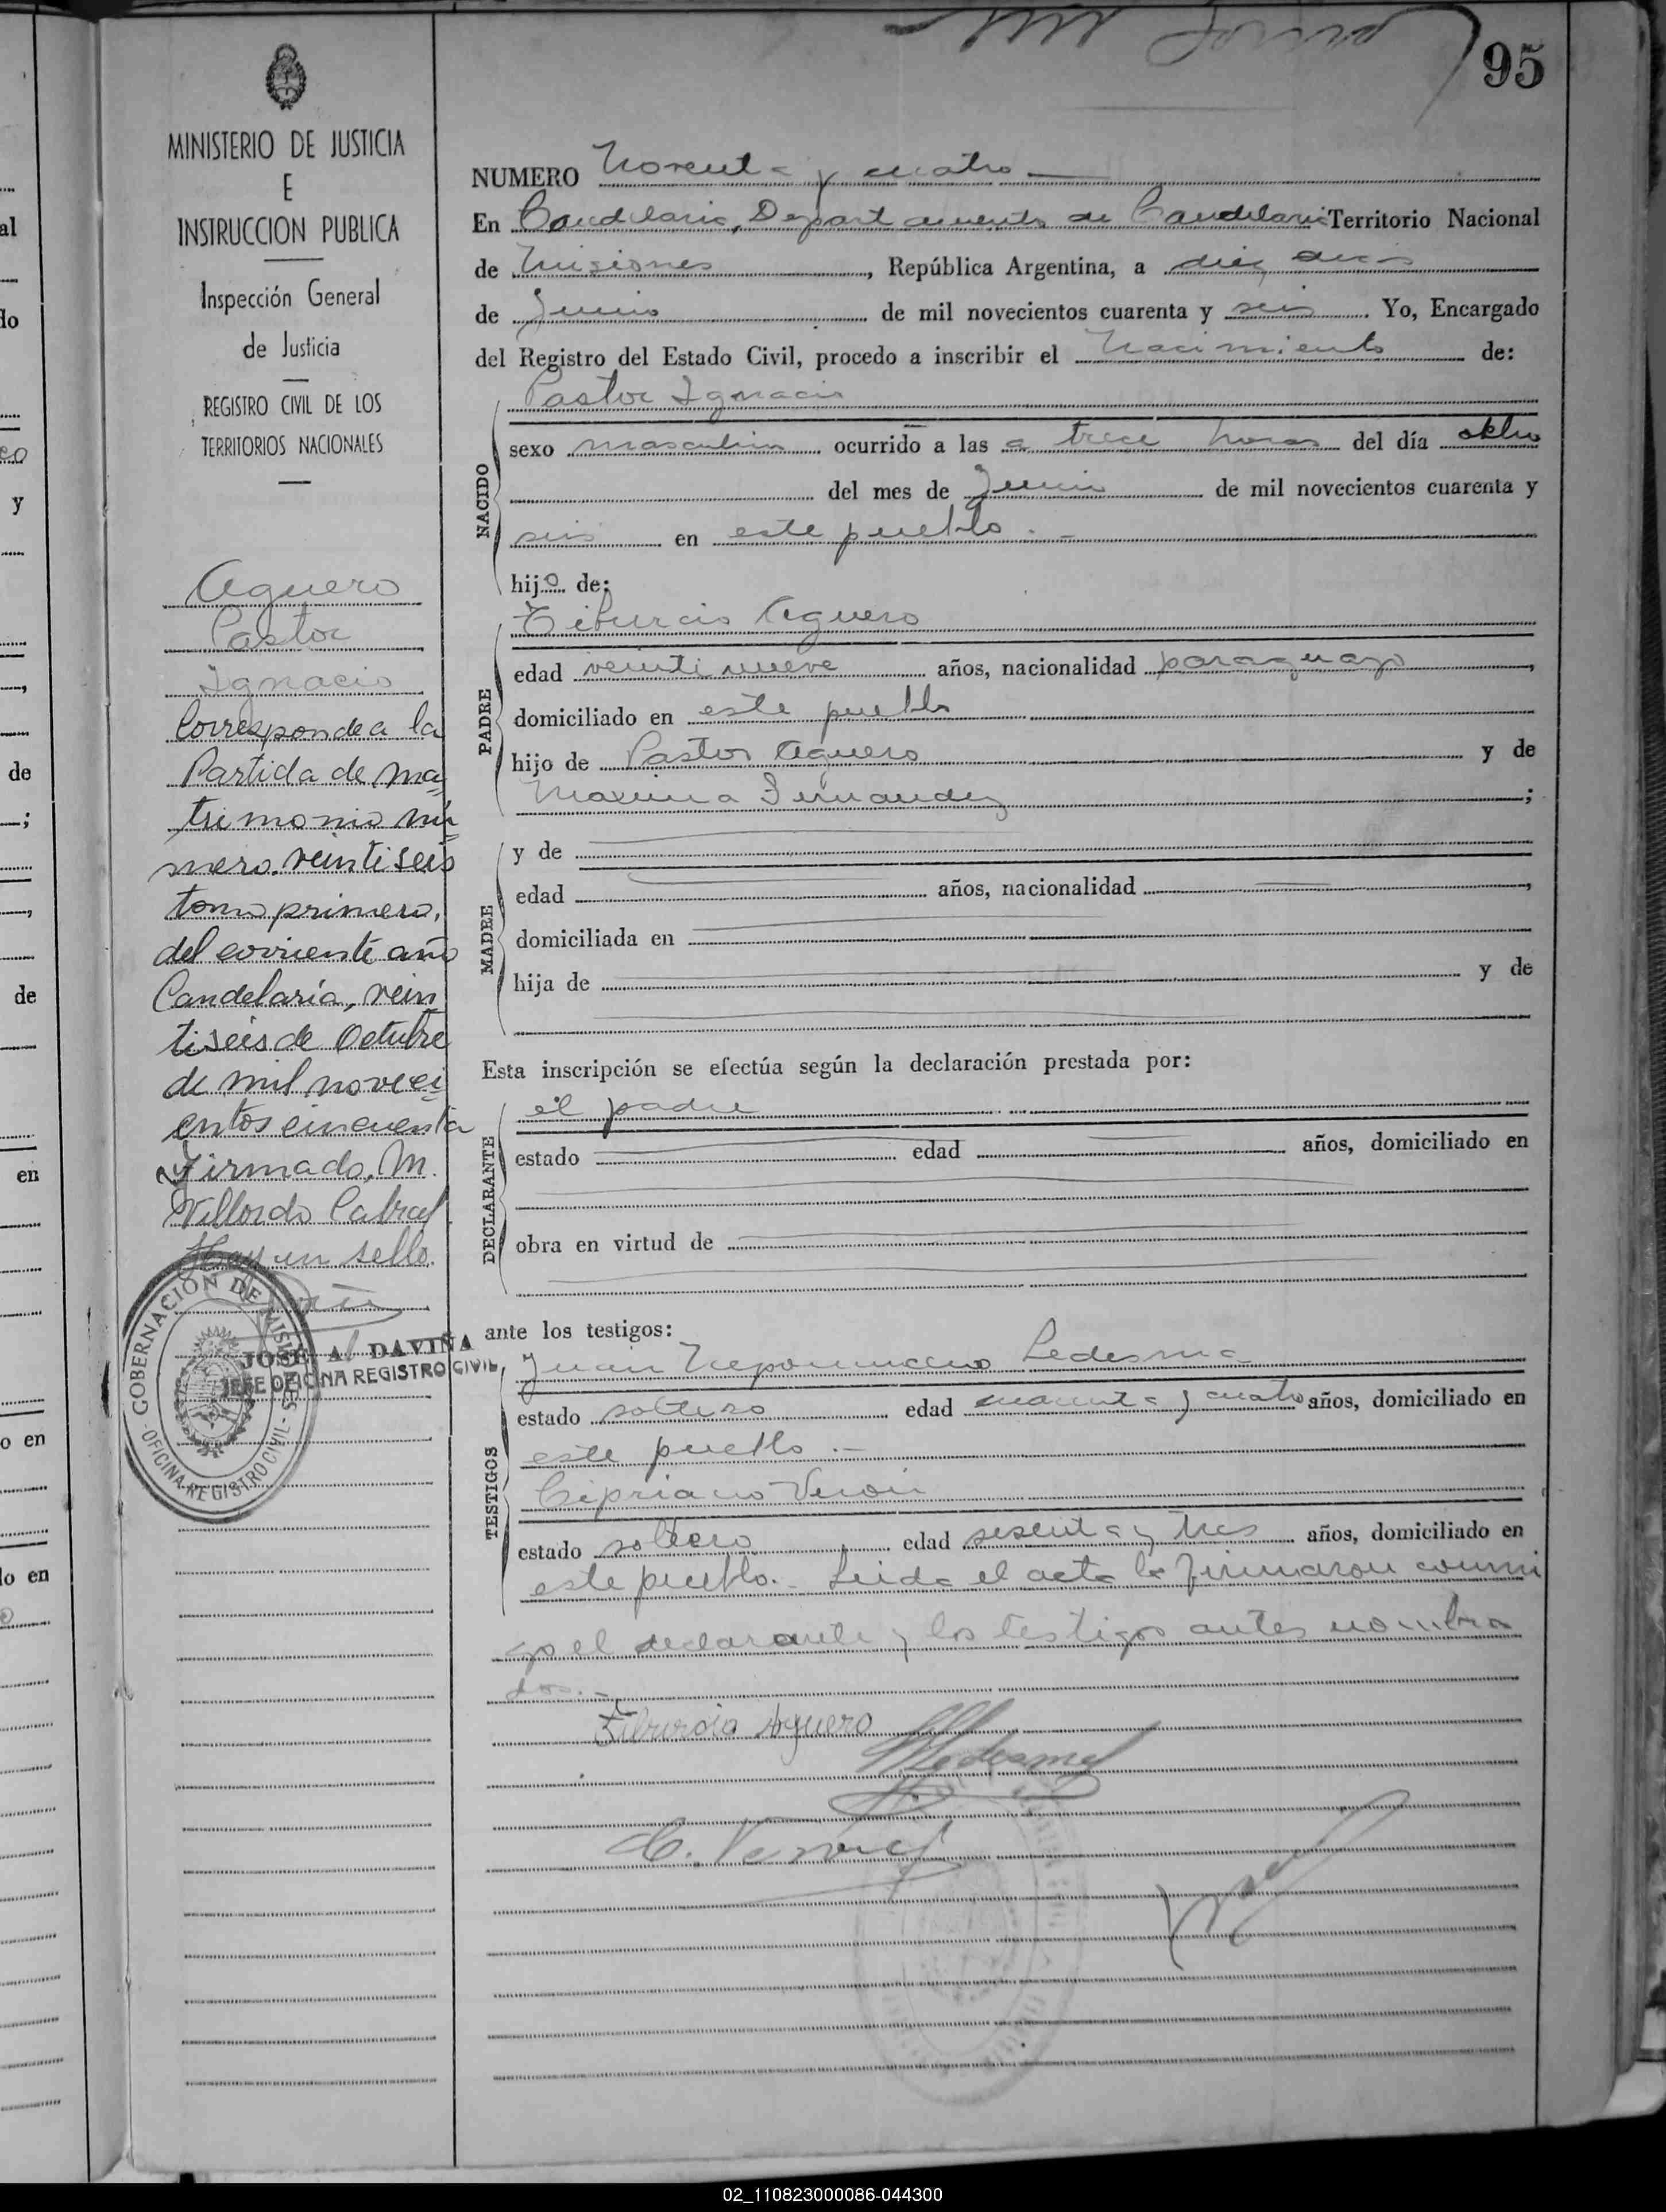 95
MINISTERIO DE JUSTICIA
E
INSTRUCCION PUBLICA
Inspección General
de Justicia
REGISTRO CIVIL DE LOS
TERRITORIOS NACIONALES
Aguero
Pastor
Ignacio
Corresponde a la
Partida de ma
trimonio nú
mero veintiseis
tomo primero,
del corriente año
Candelaria, vein
tiseis de Octubre
de mil noveci
entos cincuenta
Firmado. M.
Villordo Cabral
Hay un sello.
GOBERNACIÓN DE MISIONES
OFICINA REGISTRO CIVIL
JOSÉ A. DAVIÑA
JEFE OFICINA REGISTRO CIVIL
NUMERO Noventa y cuatro
En Candelaria, Departamento de Candelaria Territorio Nacional
de Misiones, República Argentina, a diez dias
de Junio de mil novecientos cuarenta y seis. Yo, Encargado
del Registro del Estado Civil, procedo a inscribir el Nacimiento de:
NACIDO
Pastor Ignacio
sexo masculino ocurrido a las a trece horas del día ocho
del mes de Junio de mil novecientos cuarenta y
seis en este pueblo.-
hijo de:
PADRE
Tiburcio Aguero
edad veintinueve años, nacionalidad paraguayo,
domiciliado en este pueblo
hijo de Pastor Aguero y de
Maxima Fernandez;
MADRE
y de
edad años, nacionalidad,
domiciliada en
hija de y de
Esta inscripción se efectúa según la declaración prestada por:
DECLARANTE
el padre
estado edad años, domiciliado en
obra en virtud de
ante los testigos:
TESTIGOS
Juan Nepomuceno Ledesma
estado soltero edad cuarenta y cuatro años, domiciliado en
este pueblo.-
Cipriano Veron
estado soltero edad sesenta y tres años, domiciliado en
este pueblo.- Leida el acta la firmaron conmi
go el declarante y los testigos antes nombra
dos.-
Tiburcio Aguero
Ledesma
C. Veron
02_110823000086-044300